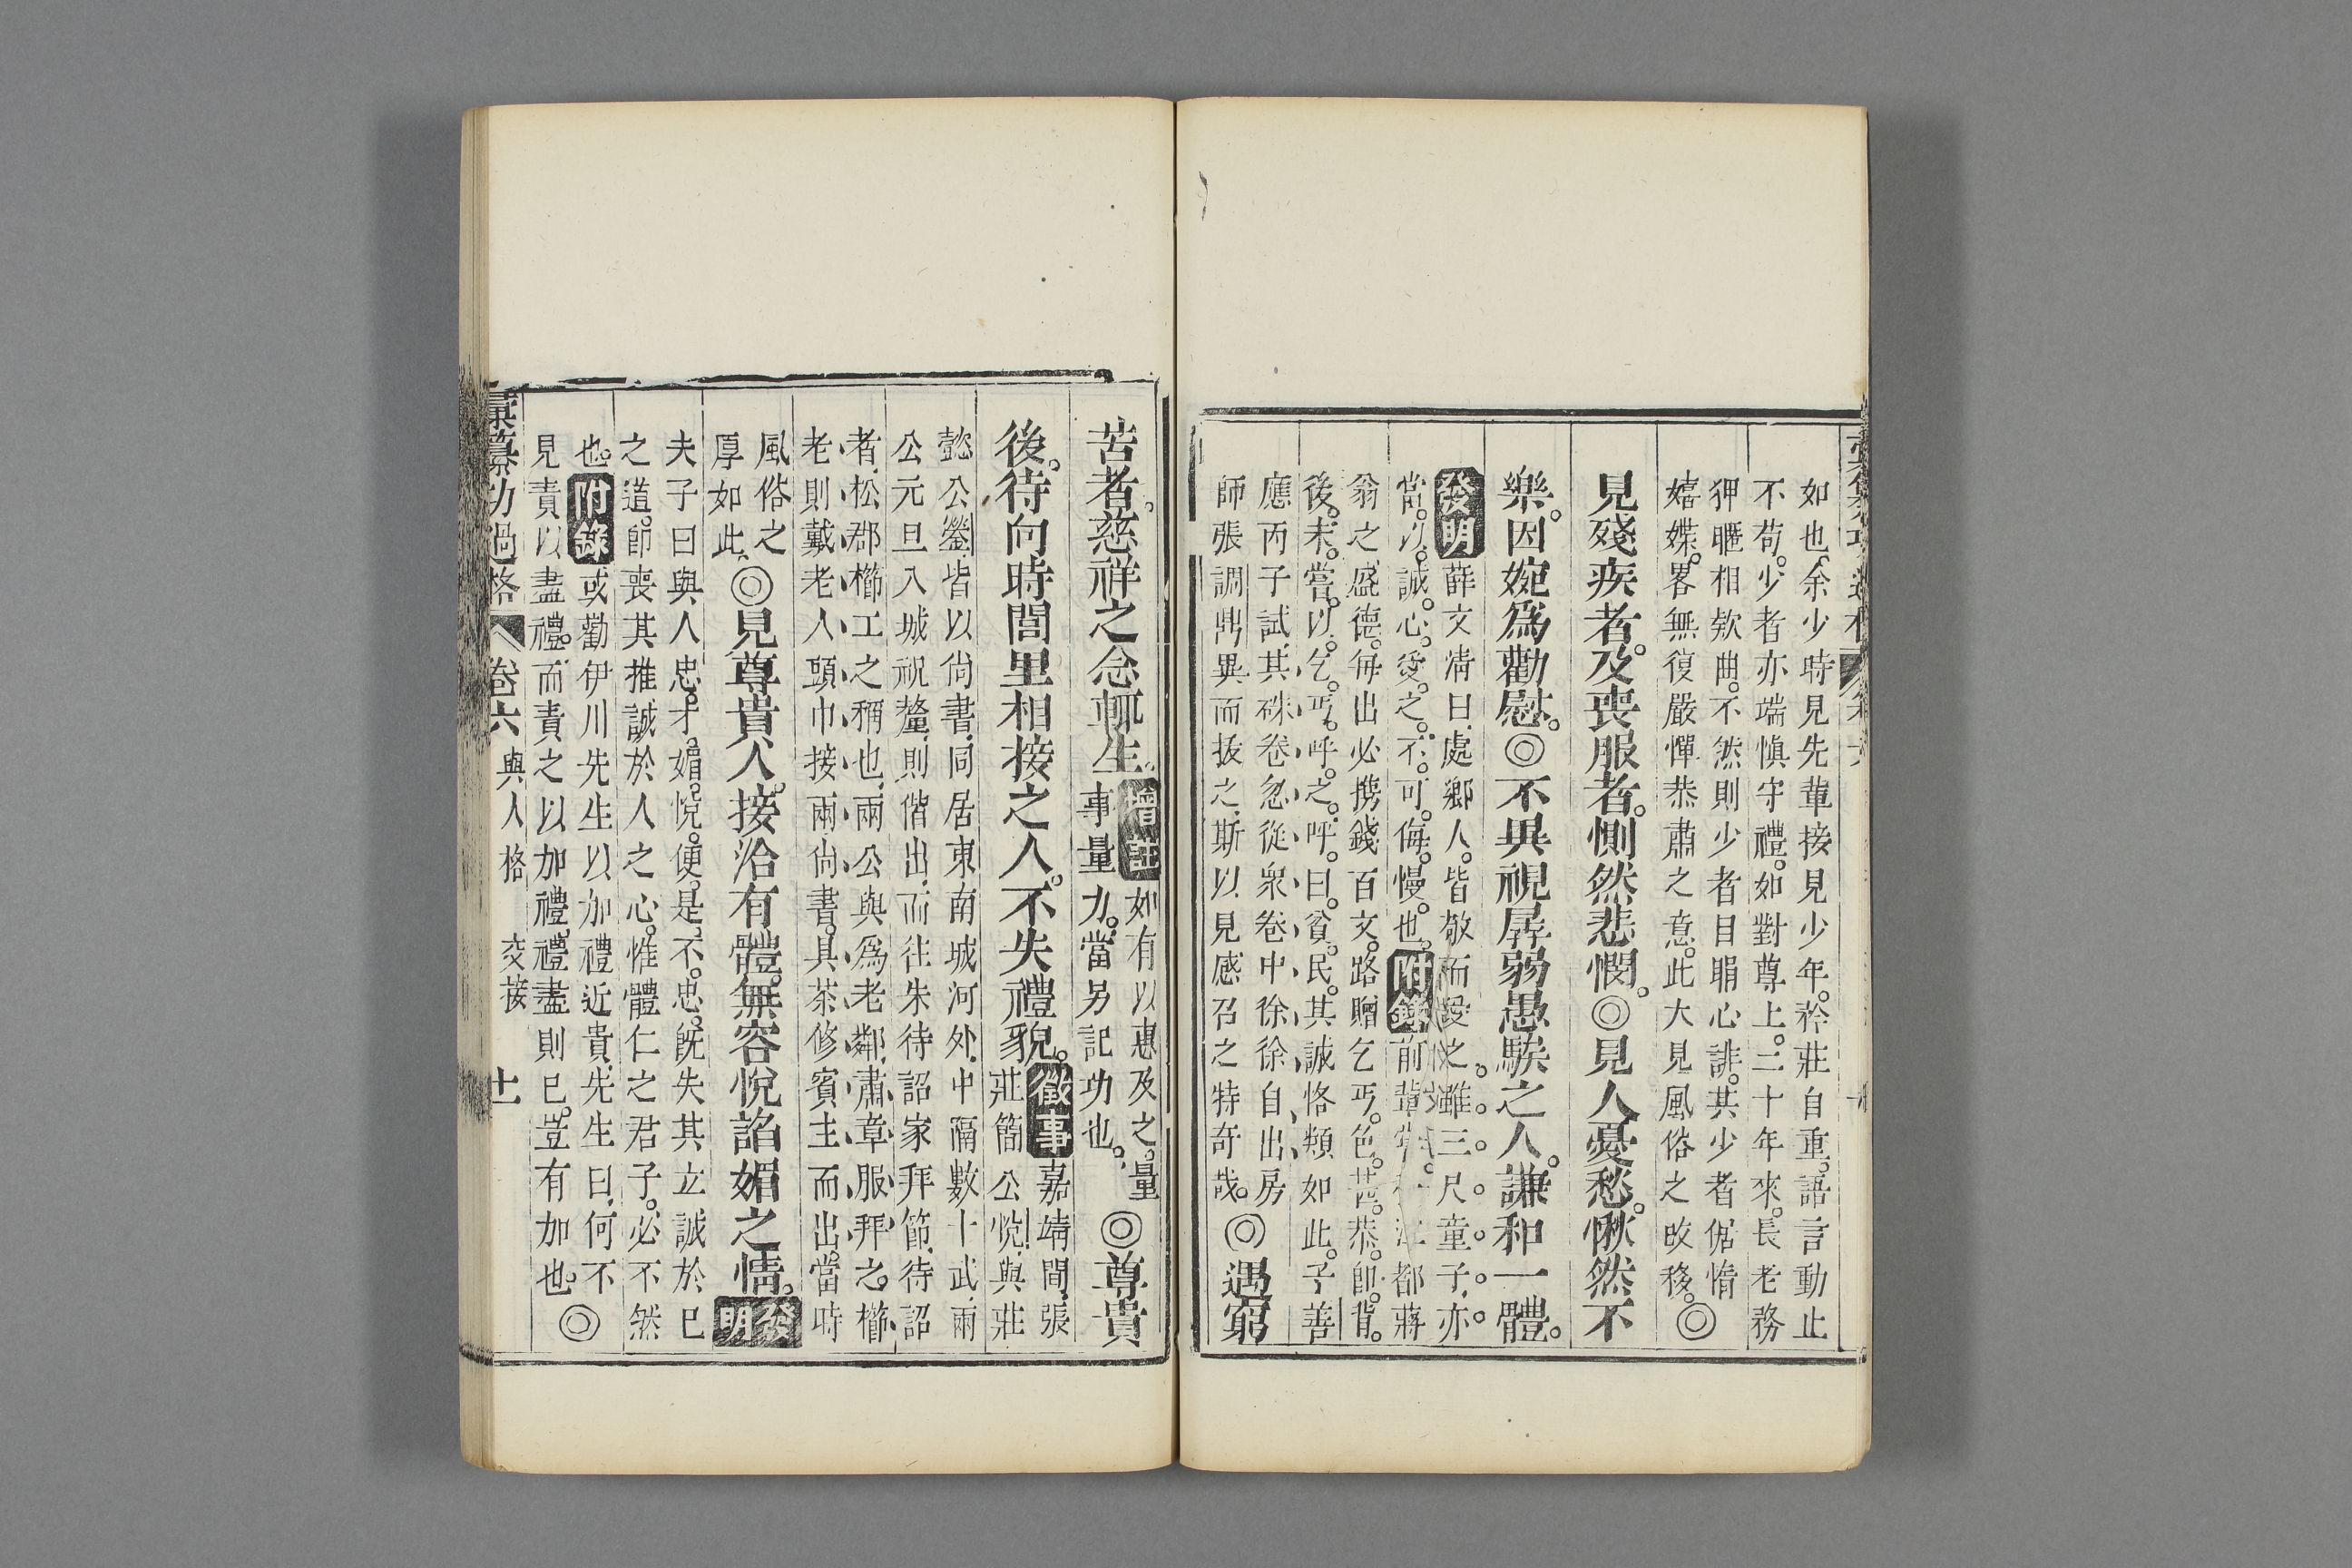 如也余少時見先輩接見少年矜莊自重語言動止
不苟少者亦端愼守禮如對尊上二十年來長老務
狎暱相欵曲不然則少者目睊心誹其少者倨惰
嬉媟畧無復嚴憚恭肅之意此大見風俗之敗移◎
見殘疾者及喪服者惻然悲憫◎見人憂愁愀然不
樂因婉爲勸慰◎不異視孱弱愚騃之人謙和一體
發明 薛文清曰處鄉人皆敬而愛之雖三尺童子亦
當以誠心愛之不可侮慢也 附錄 前輩 江都蔣
翁之盛德每出必携錢百文路贈乞丐色 恭卽背
後未嘗以乞丐呼之呼曰貧民其誠恪類如此子善
應丙子試其硃卷忽從衆卷中徐徐自出房
師張調鼎異而拔之斯以見感召之特奇哉◎遇窮
苦者慈祥之念輒生 增註 如有以惠及之量
事量力當另記功也 ◎尊貴
後待向時閭里相接之人不失禮貌 徵事 嘉靖間張
莊簡公悅與莊
懿公鎣皆以尙書同居東南城河外中隔數十武兩
公元旦入城祝釐則偕出而往朱待詔家拜節待詔
者松郡櫛工之稱也兩公與爲老鄰肅章服拜之櫛
老則戴老人頭巾接兩尙書具茶修賓主而出當時
風俗之
厚如此◎見尊貴人接洽有體無容悅諂媚之情 發明
夫子曰與人忠才媚悅便是不忠旣失其立誠於已
之道節喪其推誠於人之心惟體仁之君子必不然
也 附錄 或勸伊川先生以加禮近貴先生曰何不
見責以盡禮而責之以加禮禮盡則已豈有加也◎
彙纂功過格 卷六 與人格 交接 十一